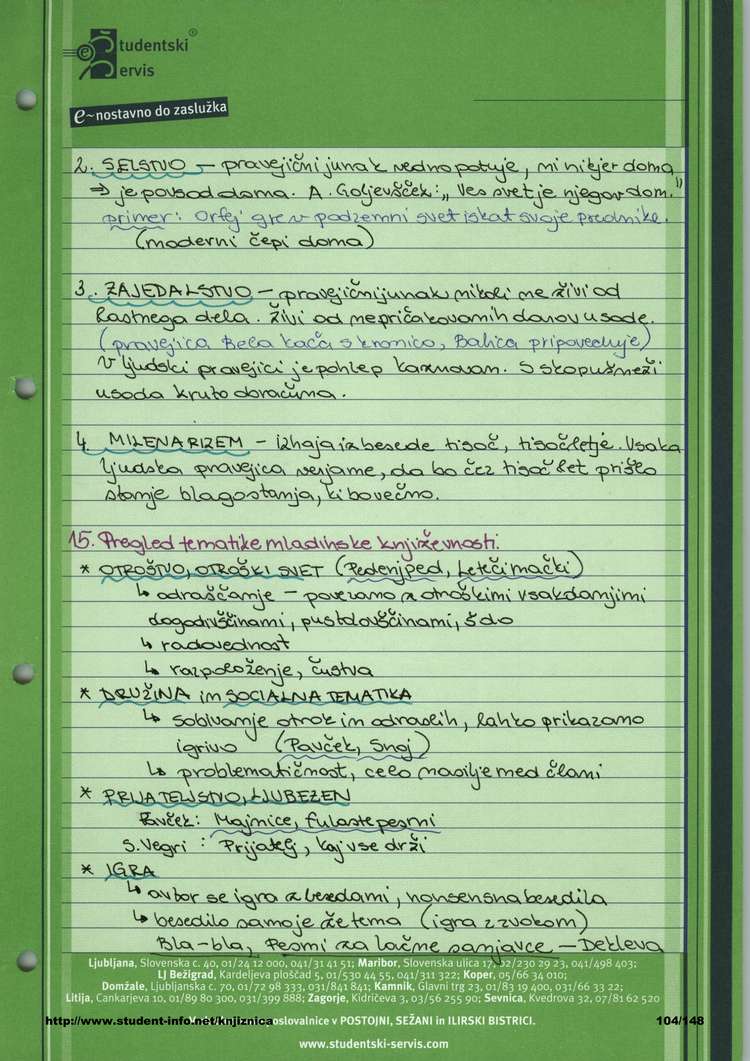 Študentski®
Servis
e~nostavno do zaslužka
2. SELSTVO – pravejični junak vedno potuje, ni nikjer doma,
⇒ je povsod doma. A. Goljevšček: „Ves svet je njegov dom."
primer: Orfej gre v podzemni svet iskat svoje prednike.
(moderni čepi doma)
3. ZAJEDALSTVO – pravejični junak nikoli ne živi od
lastnega dela. Živi od nepričakovanih darov usode.
(pravejica Bela kača s kronico, Babica pripoveduje)
V ljudski pravejici je pohlep kaznovan. S skopušneži
usoda kruto obračuna.
4. MILENARIZEM – izhaja iz besede tisoč, tisočletje. Vsaka
ljudska pravejica verjame, da bo čez tisoč let prišlo
stanje blagostanja, ki bo večno.
15. Pregled tematike mladinske književnosti.
* OTROŠTVO, OTROŠKI SVET (Pedenjped, Leteči mački)
↳ odraščanje – povezano z otroškimi vsakdanjimi
dogodivščinami, pustolovščinami, šolo
↳ radovednost
↳ razpoloženje, čustva
* DRUŽINA in SOCIALNA TEMATIKA
↳ sobivanje otrok in odraslih, lahko prikazano
igrivo (Pavček, Snoj)
↳ problematičnost, celo nasilje med člani
* PRIJATELJSTVO, LJUBEZEN
Pavček: Majnice, fulaste pesmi
S. Vegri : Prijatelj, kaj vse drži
* IGRA
↳ avtor se igra z besedami, nonsensna besedila
↳ besedilo samo je že tema (igra z zvokom)
Bla-bla, Pesmi za lačne sanjavce – Dekleva
Ljubljana, Slovenska c. 40, 01/24 12 000, 041/31 41 51; Maribor, Slovenska ulica 17, 02/230 29 23, 041/498 403;
LJ Bežigrad, Kardeljeva ploščad 5, 01/530 44 55, 041/311 322; Koper, 05/66 34 010;
Domžale, Ljubljanska c. 70, 01/72 98 333, 031/841 841; Kamnik, Glavni trg 23, 01/83 19 400, 031/66 33 22;
Litija, Cankarjeva 10, 01/89 80 300, 031/399 888; Zagorje, Kidričeva 3, 03/56 255 90; Sevnica, Kvedrova 32, 07/81 62 520
http://www.student-info.net/knjiznica poslovalnice v POSTOJNI, SEŽANI in ILIRSKI BISTRICI. 104/148
www.studentski-servis.com